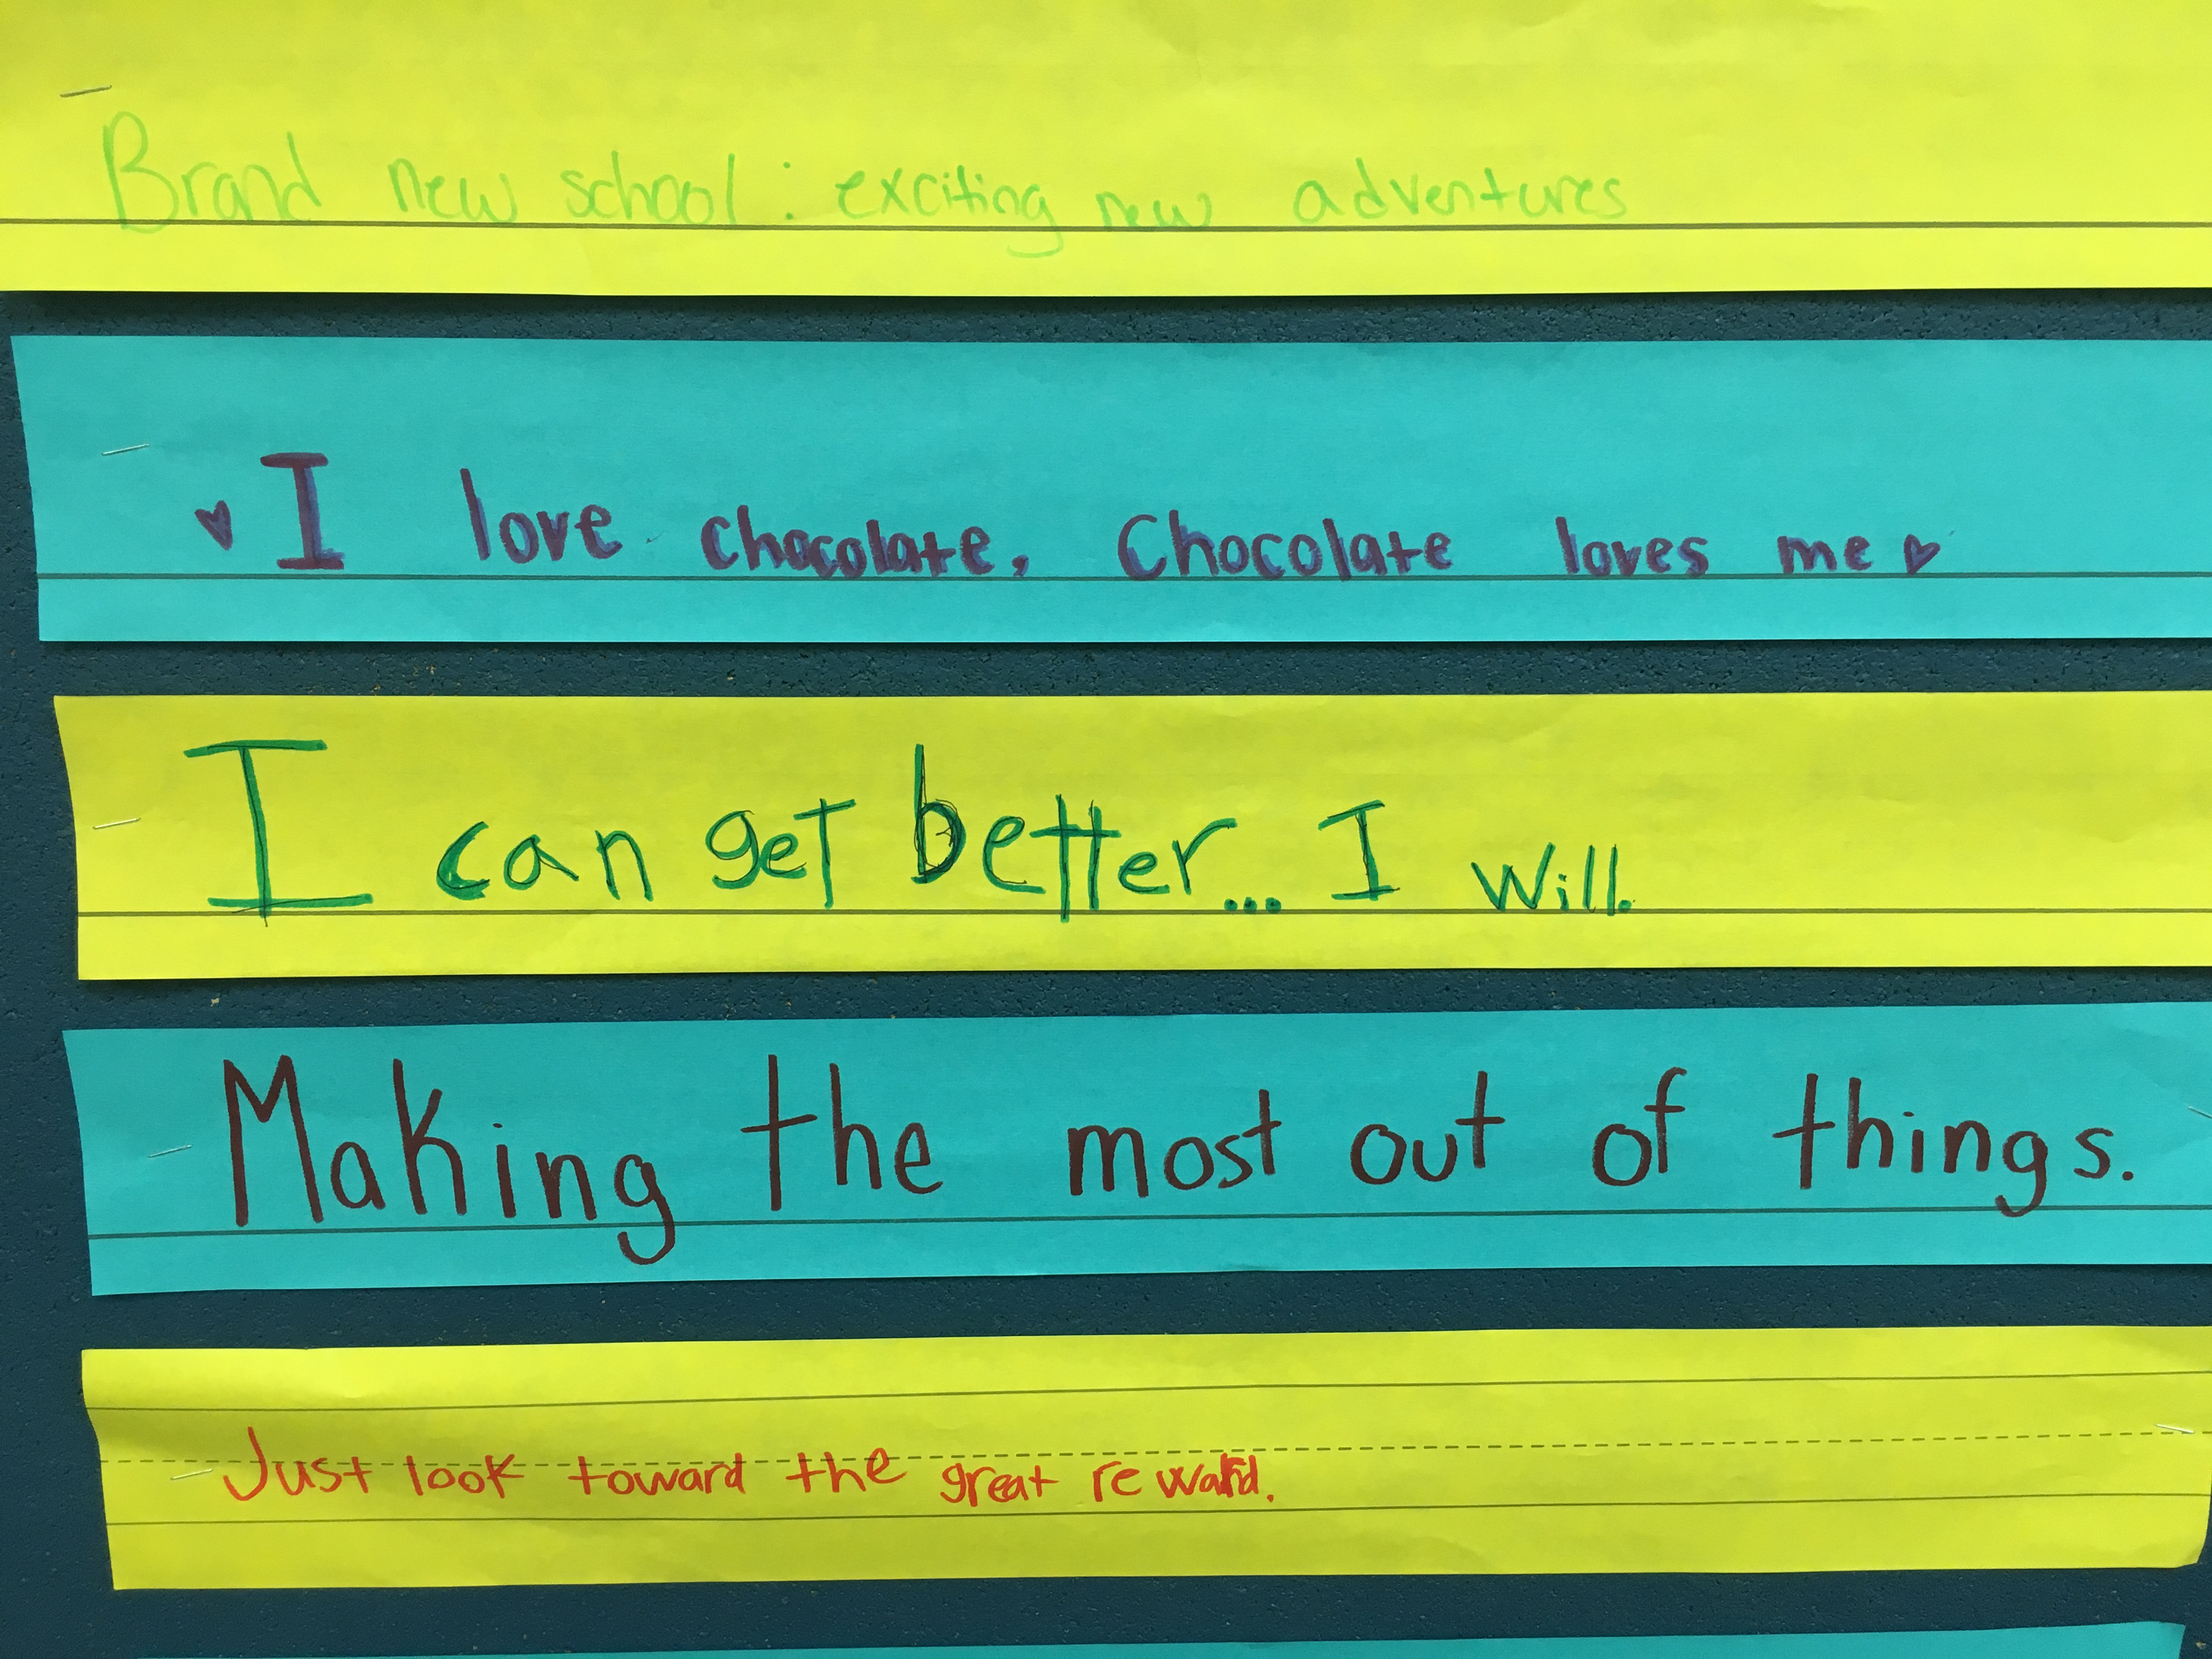 Brand new school: exciting new adventures
♥ I love chocolate, Chocolate loves me ♥
I can get better... I will.
Making the most out of things.
Just look toward the great reward.